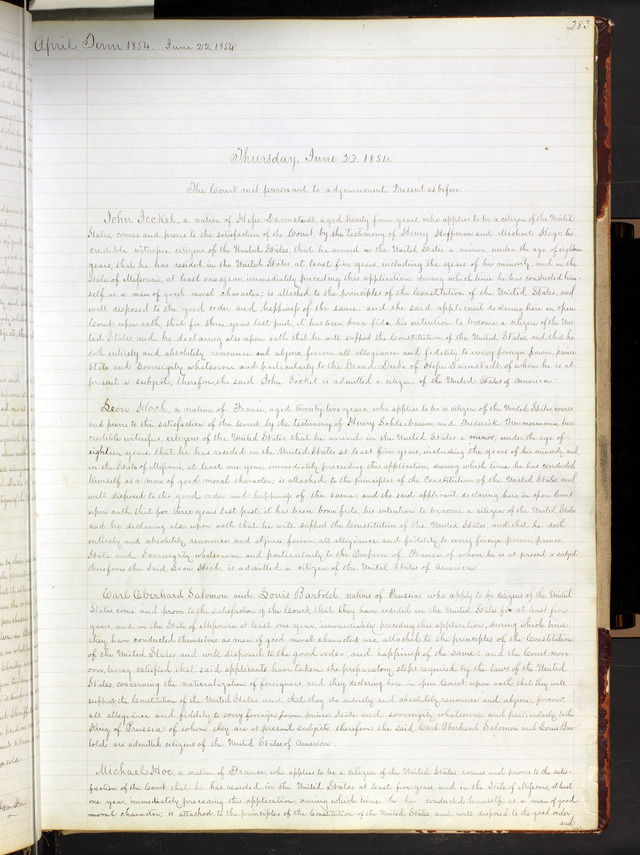 283
April Term 1854. June 22, 1854
Thursday, June 22 1854.
The Court met pursuant to adjournment. Present as before
John Jeckel, a native of Hesse Darmstadt, aged twenty four years, who applies to be a citizen of the United
States, comes and proves to the satisfaction of the Court, by the testimony of Henry Hoffman and Michael two
credible witnesses, citizens of the United States, that he arrived in the United States a minor, under the age of eighteen
years, that he has resided in the United States at least five years, including the years of his minority, and in the
State of Missouri, at least one year immediately preceding this application, during which time he has conducted him-
self as a man of good moral character; is attached to the principles of the Constitution of the United States, and
well disposed to the good order and happiness of the same: and the said applicant declaring here in open
Court upon oath, that for three years last past, it has been bona fide, his intention to become a citizen of the Uni-
ted States and he declaring also upon oath that he will support the Constitution of the United States, and that he
doth entirely and absolutely renounce and abjure forever all allegiance and fidelity to every foreign power, prince
State and Sovereignty whatsoever and particularly to the Grand Duke of Hesse Darmstadt, of whom he is at
present a subject, therefore the said John Jeckel is admitted a citizen of the United States of America.
Leon Hoch, a native of France, aged twenty two years, who applies to be a citizen of the United States comes
and proves to the satisfaction of the Court, by the testimony of Henry Schlerbaum, and Frederick two
credible witnesses, citizens of the United States that he arrived in the United States a minor, under the age of
eighteen years, that he has resided in the United States at least five years, including the years of his minority, and
in the State of Missouri, at least one year immediately preceding this application, during which time he has conducted
himself as a man of good moral character; is attached to the principles of the Constitution of the United States, and
well disposed to the good order and happiness of the same: and the said applicant declaring here in open Court
upon oath, that for three years last past, it has been bona fide, his intention to become a citizen of the United States
and he declaring also upon oath that he will support the Constitution of the United States, and that he doth
entirely and absolutely renounce and abjure, forever, all allegiance and fidelity to every foreign power, prince,
State and Sovereignty whatsoever, and particularly to the Emperor of France of whom he is at present a subject
therefore the said Leon Hoch is admitted a citizen of the United States of America
Carl Eberhard Salomon and Louis Bartold, natives of Prussia who apply to be citizens of the United
States, come and prove to the satisfaction of the Court, that they have resided in the United States for at least five
years, and in the State of Missouri at least one year, immediately preceding this application, during which time
they have conducted themselves as men of good moral character are attached to the principles of the Constitution
of the United States and well disposed to the good order, and happiness of the same: and the Court more-
over, being satisfied that said applicants have taken the preparatory steps required by the laws of the United
States, concerning the naturalization of foreigners, and they declaring here in open Court, upon oath, that they will
support the Constitution of the United States and that they do entirely and absolutely renounce and abjure forever
all allegiance and fidelity to every foreign power, prince, State and sovereignty whatsoever, and particularly to the
King of Prussia of whom they are at present subjects, therefore the said Carl Eberhard Salomon and Louis Bar-
told are admitted citizens of the United States of America.
Michael Hoc, a native of France who applies to be a citizen of the United States, comes and proves to the satis-
faction of the Court, that he has resided in the United States at least five years and in the State of Missouri, at least
one year, immediately preceding this application, during which time he has conducted himself as a man of good
moral character: is attached to the principles of the Constitution of the United States, and well disposed to the good order
and